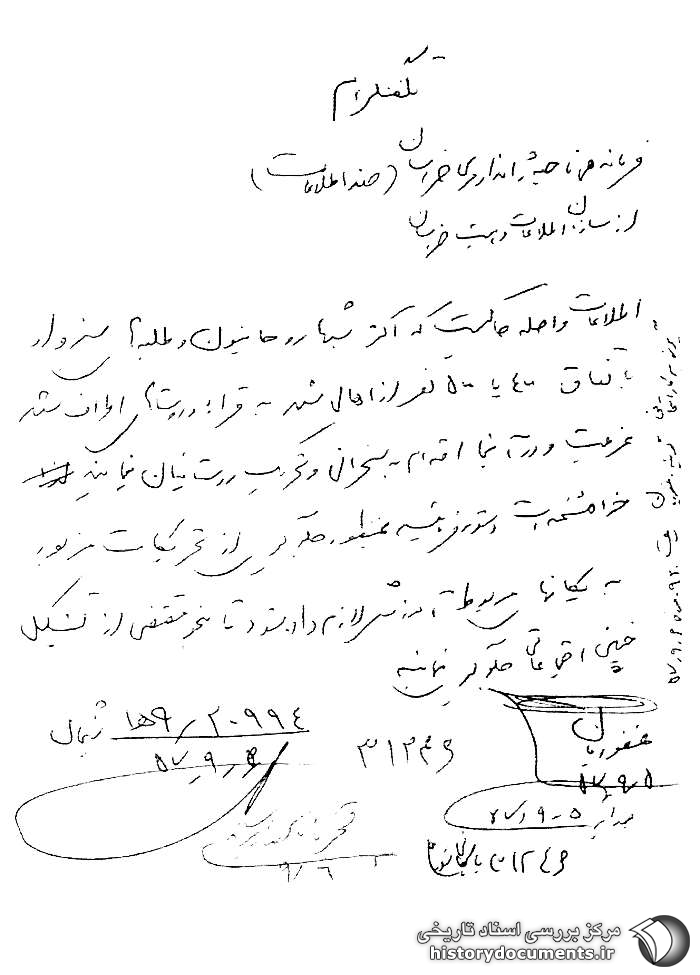 تلفنگرام
فرمانده ناحیه ژاندارمری خراسان (ضد اطلاعات)
از سازمان اطلاعات و امنیت خراسان
اطلاعات واصله حاکیست که اکثر شبها روحانیون و طلبه‌های سبزوار
باتفاق ۴۰ یا ۵۰ نفر از اهالی شهر به قراء و روستاهای اطراف شهر
عزیمت و در آنجا اقدام به سخنرانی و تحریک روستائیان مینمایند
خواهشمند است دستور فرمائید بمنظور جلوگیری از تحریکات مزبور
به یگانهای مربوطه آموزش لازم داده شود تا بنحو مقتضی از تشکیل
چنین اجتماعاتی جلوگیری نمایند
غفوریان
۵۷/۹/۵
۳۱۲۴۶
۲۰۹۹۴ / ۹ه‍ ۱
۵۷/۹/۶
۵۷/۹/۵
۹/۶
مرکز بررسی اسناد تاریخی
historydocuments.ir